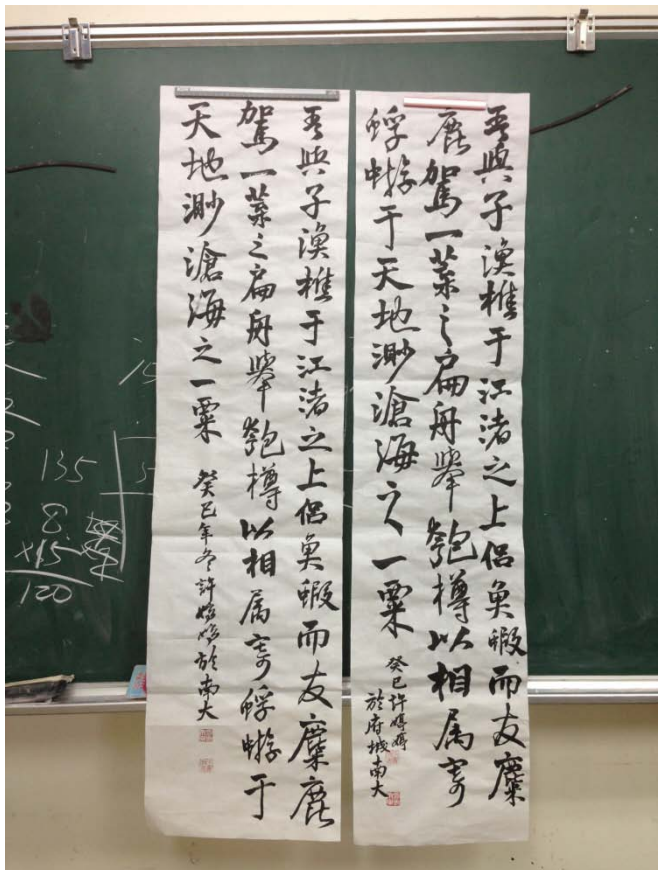 吾與子漁樵于江渚之上侶魚蝦而友麋
鹿駕一葉之扁舟舉匏樽以相属寄
蜉蝣于天地渺滄海之一粟
癸巳許婷婷
於府城南大
吾與子漁樵于江渚之上侶魚蝦而友麋鹿
駕一葉之扁舟舉匏樽以相属寄蜉蝣于
天地渺滄海之一粟
癸巳年冬許婷婷於南大
135
8
×15
120